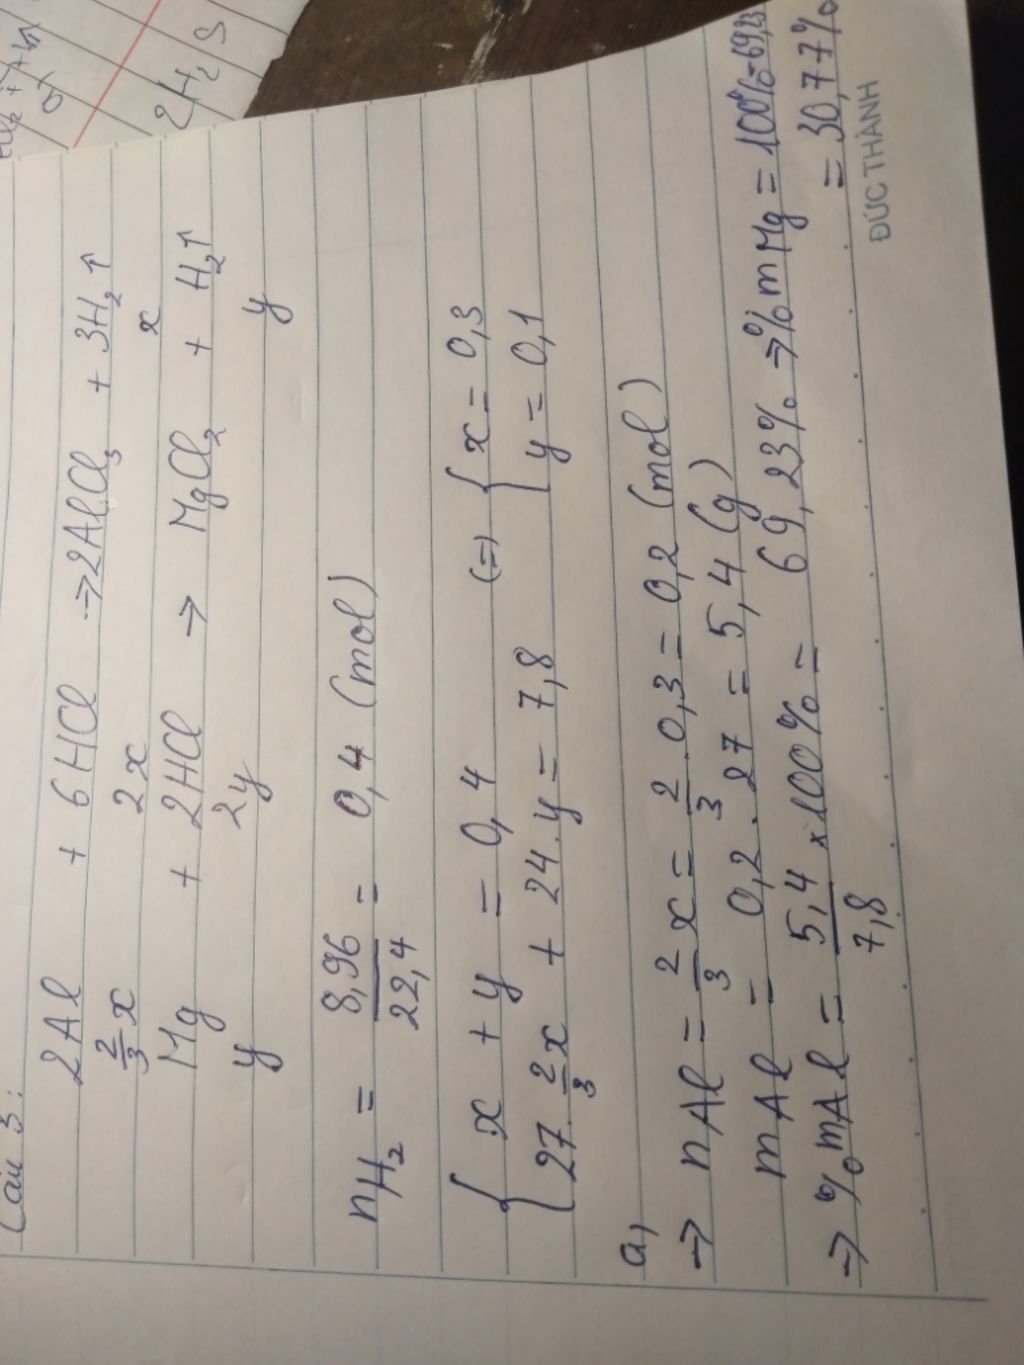 Câu 3:
2Al + 6HCl → 2AlCl₃ + 3H₂↑
2/3x 2x x
Mg + 2HCl → MgCl₂ + H₂↑
y 2y y
nH₂ = 8,96/22,4 = 0,4 (mol)
{ x + y = 0,4 (=) { x = 0,3
{ 27. 2/3x + 24.y = 7,8 { y = 0,1
a,
→ nAl = 2/3 x = 2/3 . 0,3 = 0,2 (mol)
mAl = 0,2 . 27 = 5,4 (g)
→ %mAl = 5,4/7,8 x100% = 69,23% → %mMg = 100%-69,23
= 30,77%
ĐỨC THÀNH
2H₂S